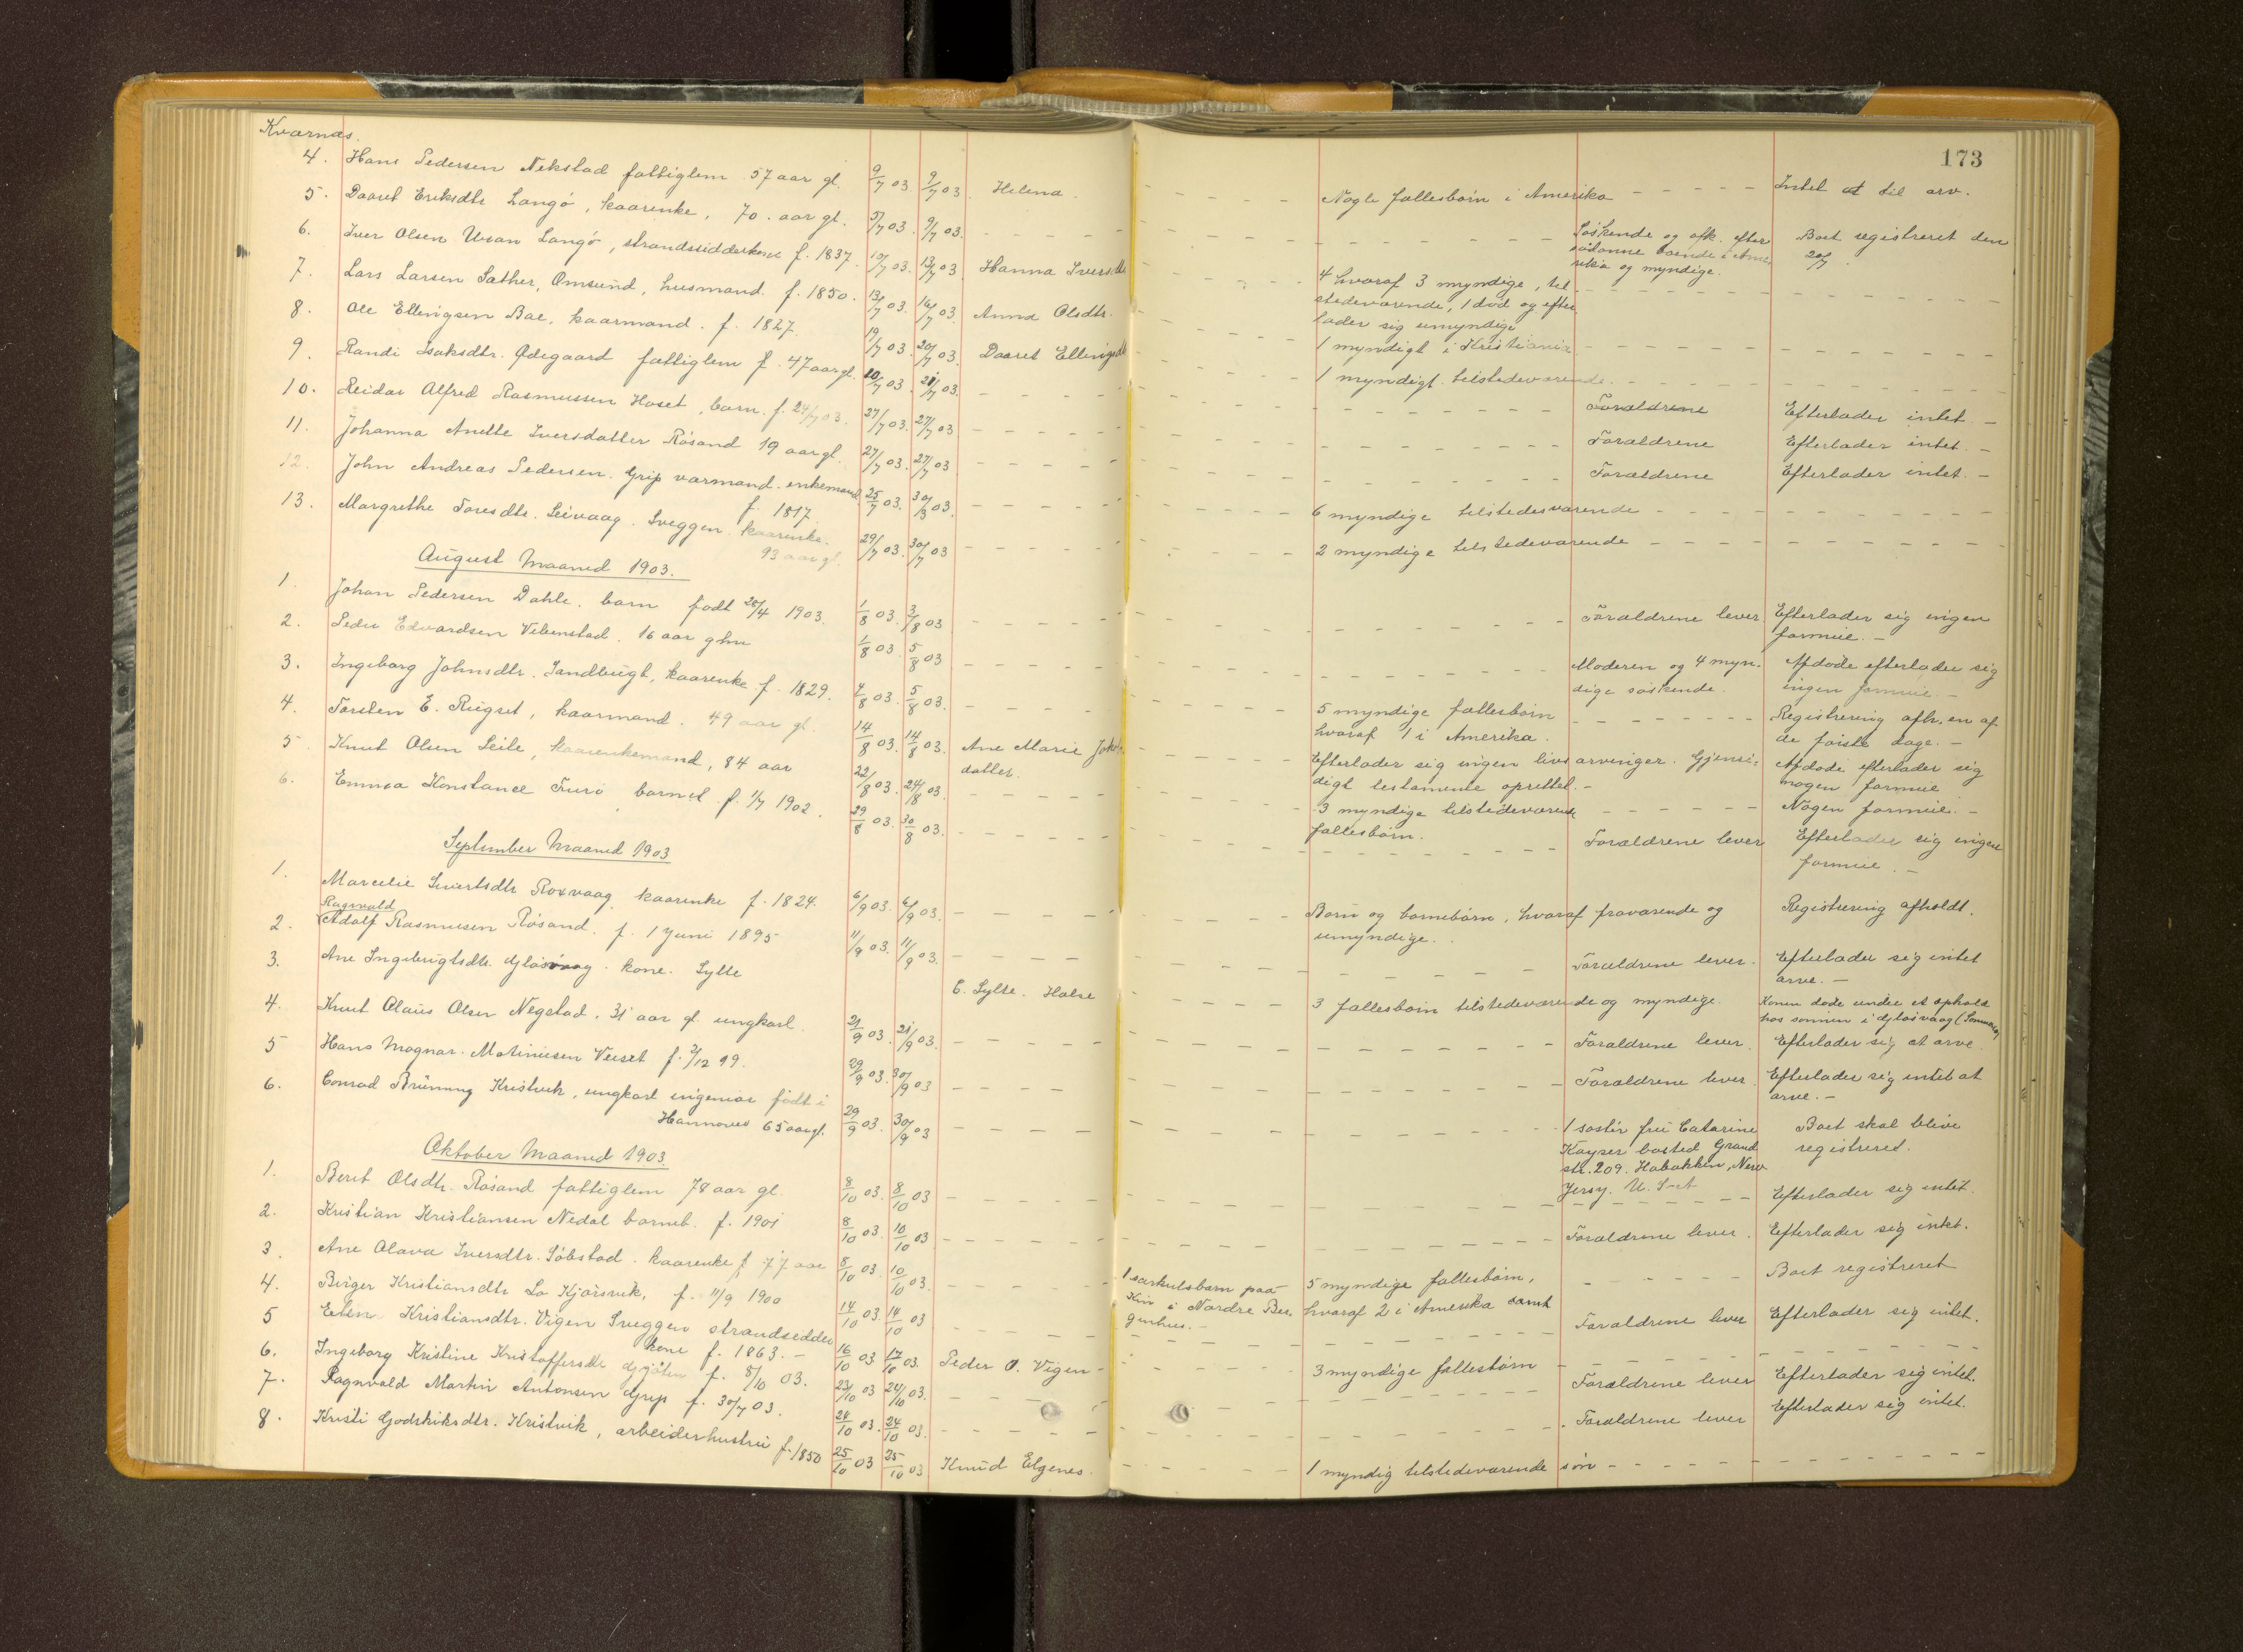 173
Kvarnæs.
4. Hans Pedersen Nekstad fattiglem 57 aar gl. 9/7 03. 9/7 03 Helena. Nogle fællesbørn i Amerika Intet at til arv.
5. Daaret Eriksdtr Langø, kaarenke, 70 aar gl. 5/7 03. 9/7 03. Søskende og afk. efter Boet registreret den
saadanne boende i Ame- 20/7.
rika og myndige.
6. Iver Olsen Uran Langø, strandsidder f. 1837. 10/7 03. 13/7 03 Hanna Iversdtr 4 hvoraf 3 myndige, til
stedeværende, 1 død og efter
lader sig umyndige
7. Lars Larsen Sæther, Omsund, husmand. f. 1850. 13/7 03. 16/7 03. Anna Olsdtr. 1 myndigt i Kristiania
8. Ole Ellingsen Bae, kaarmand. f. 1827. 19/7 03. 20/7 03. Daaret Ellingsdtr 1 myndigt tilstedeværende.
9. Randi Isaksdtr. Ødegaard fattiglem f. 47 aar gl. 20/7 03. 21/7 03. Forældrene Efterlader intet. -
10. Reidar Alfred Rasmussen Hoset, barn. f. 24/7 03. 27/7 03. 27/7 03 Forældrene Efterlader intet. -
11. Johanna Anette Iversdatter Røsand 19 aar gl. 27/7 03. 27/7 03 Forældrene Efterlader intet. -
12. John Andreas Pedersen. Grip varmand. enkemand. 25/7 03. 30/7 03. 6 myndige tilstedesværende
f. 1817
13. Margrethe Toresdtr. Leivaag. Sveggen. kaarenke. 29/7 03. 30/7 03 2 myndige tilstedeværende
93 aar gl.
August Maaned 1903.
1. Johan Pedersen Dahle. barn født 20/4 1903. 1/8 03. 3/8 03 Forældrene lever Efterlader sig ingen
formue. -
2. Peder Edvardsen Vebenstad. 16 aar glm 1/8 03. 5/8 03 Moderen og 4 myn- Afdøde efterlader sig
dige søskende. ingen formue. -
3. Ingeborg Johnsdtr. Sandbugt, kaarenke f. 1829. 4/8 03. 5/8 03. 5 myndige fællesbørn Registrering afh. en af
hvoraf 1 i Amerika. de første dage. -
4. Torsten E. Rugset, kaarmand. 49 aar gl. 14/8 03. 14/8 03. Ane Marie Johs- Efterlader sig ingen livsarvinger. Gjensi- Afdøde efterlader sig
datter. digt testamente oprettet. - nogen formue
5. Knut Olsen Leite, kaarenkemand, 84 aar 22/8 03. 24/8 03. 3 myndige tilstedeværende Nogen formue. -
fællesbørn.
6. Emma Konstance Furø barnet f. 1/7 1902. 29/8 03. 30/8 03. Forældrene lever Efterlader sig ingen
formue. -
September Maaned 1903
1. Marcelie Sivertsdtr Roxvaag kaarenke f. 1824. 6/9 03. 6/9 03. Børn og børnebørn, hvoraf fraværende og Registrering afholdt.
umyndige.
Ragnvald
2. Adolf Rasmussen Røsand. f. 1 Juni 1895 11/9 03. 11/9 03. Forældrene lever. Efterlader sig intet
arve. -
3. Ane Ingebrigtsdtr. Gløsvaag. kone. Sylte E. Sylte. Halse 3 fællesbørn tilstedeværende og myndige. Konen døde under et ophold
hos sønnen i Gløsvaag
4. Knut Olaus Olsen Negstad. 31 aar gl ungkarl. 21/9 03. 21/9 03. Forældrene lever. Efterlader sig at arve.
5 Hans Magnar. Matinusen Veiset f. 2/12 99. 29/9 03. 30/9 03 Forældrene lever. Efterlader sig intet at
arve. -
6. Conrad Brünning Kristvik, ungkarl ingeniør født i 29/9 03. 30/9 03 1 søster fru Catarine Boet skal blive
Hannover 65 aar gl. Kayser bosted Grand registreret.
str. 209. Hobokken, New
Jersy. U. S-A
Oktober Maaned 1903.
1. Berit Olsdtr. Røsand fattiglem 78 aar gl. 8/10 03. 8/10 03 Efterlader sig intet.
2. Kristian Kristiansen Nedal barneb. f. 1901 8/10 03. 10/10 03 Forældrene lever. Efterlader sig intet.
3. Ane Olava Iversdtr. Løbstad. kaarenke f 77 aar 8/10 03. 10/10 03. 1 særkulsbarn paa 5 myndige fællesbørn, Boet registreret
Kin i Nordre Ber- hvoraf 2 i Amerika samt
genhus. -
4. Birger Kristiansdtr Lo Kjørsvik, f. 11/9 1900 14/10 03. 14/10 03 Forældrene lever Efterlader sig intet.
5 Elen Kristiansdtr. Vigen Sveggen strandsidder 16/10 03 17/10 03. Peder O. Vigen 3 myndige fællesbørn
kone f. 1863. -
6. Ingeborg Kristine Kristoffersdtr f. 8/10 03. 23/10 03 24/10 03. Forældrene lever Efterlader sig intet.
7. Ragnvald Martin Antonsen Grip f. 30/7 03. 24/10 03. 24/10 03. Forældrene lever Efterlader sig intet.
8. Kristi Godskiksdtr. Kristvik, arbeiderhustru f. 1850 25/10 03 25/10 03 Knud Elgenes. 1 myndig tilstedeværende søn